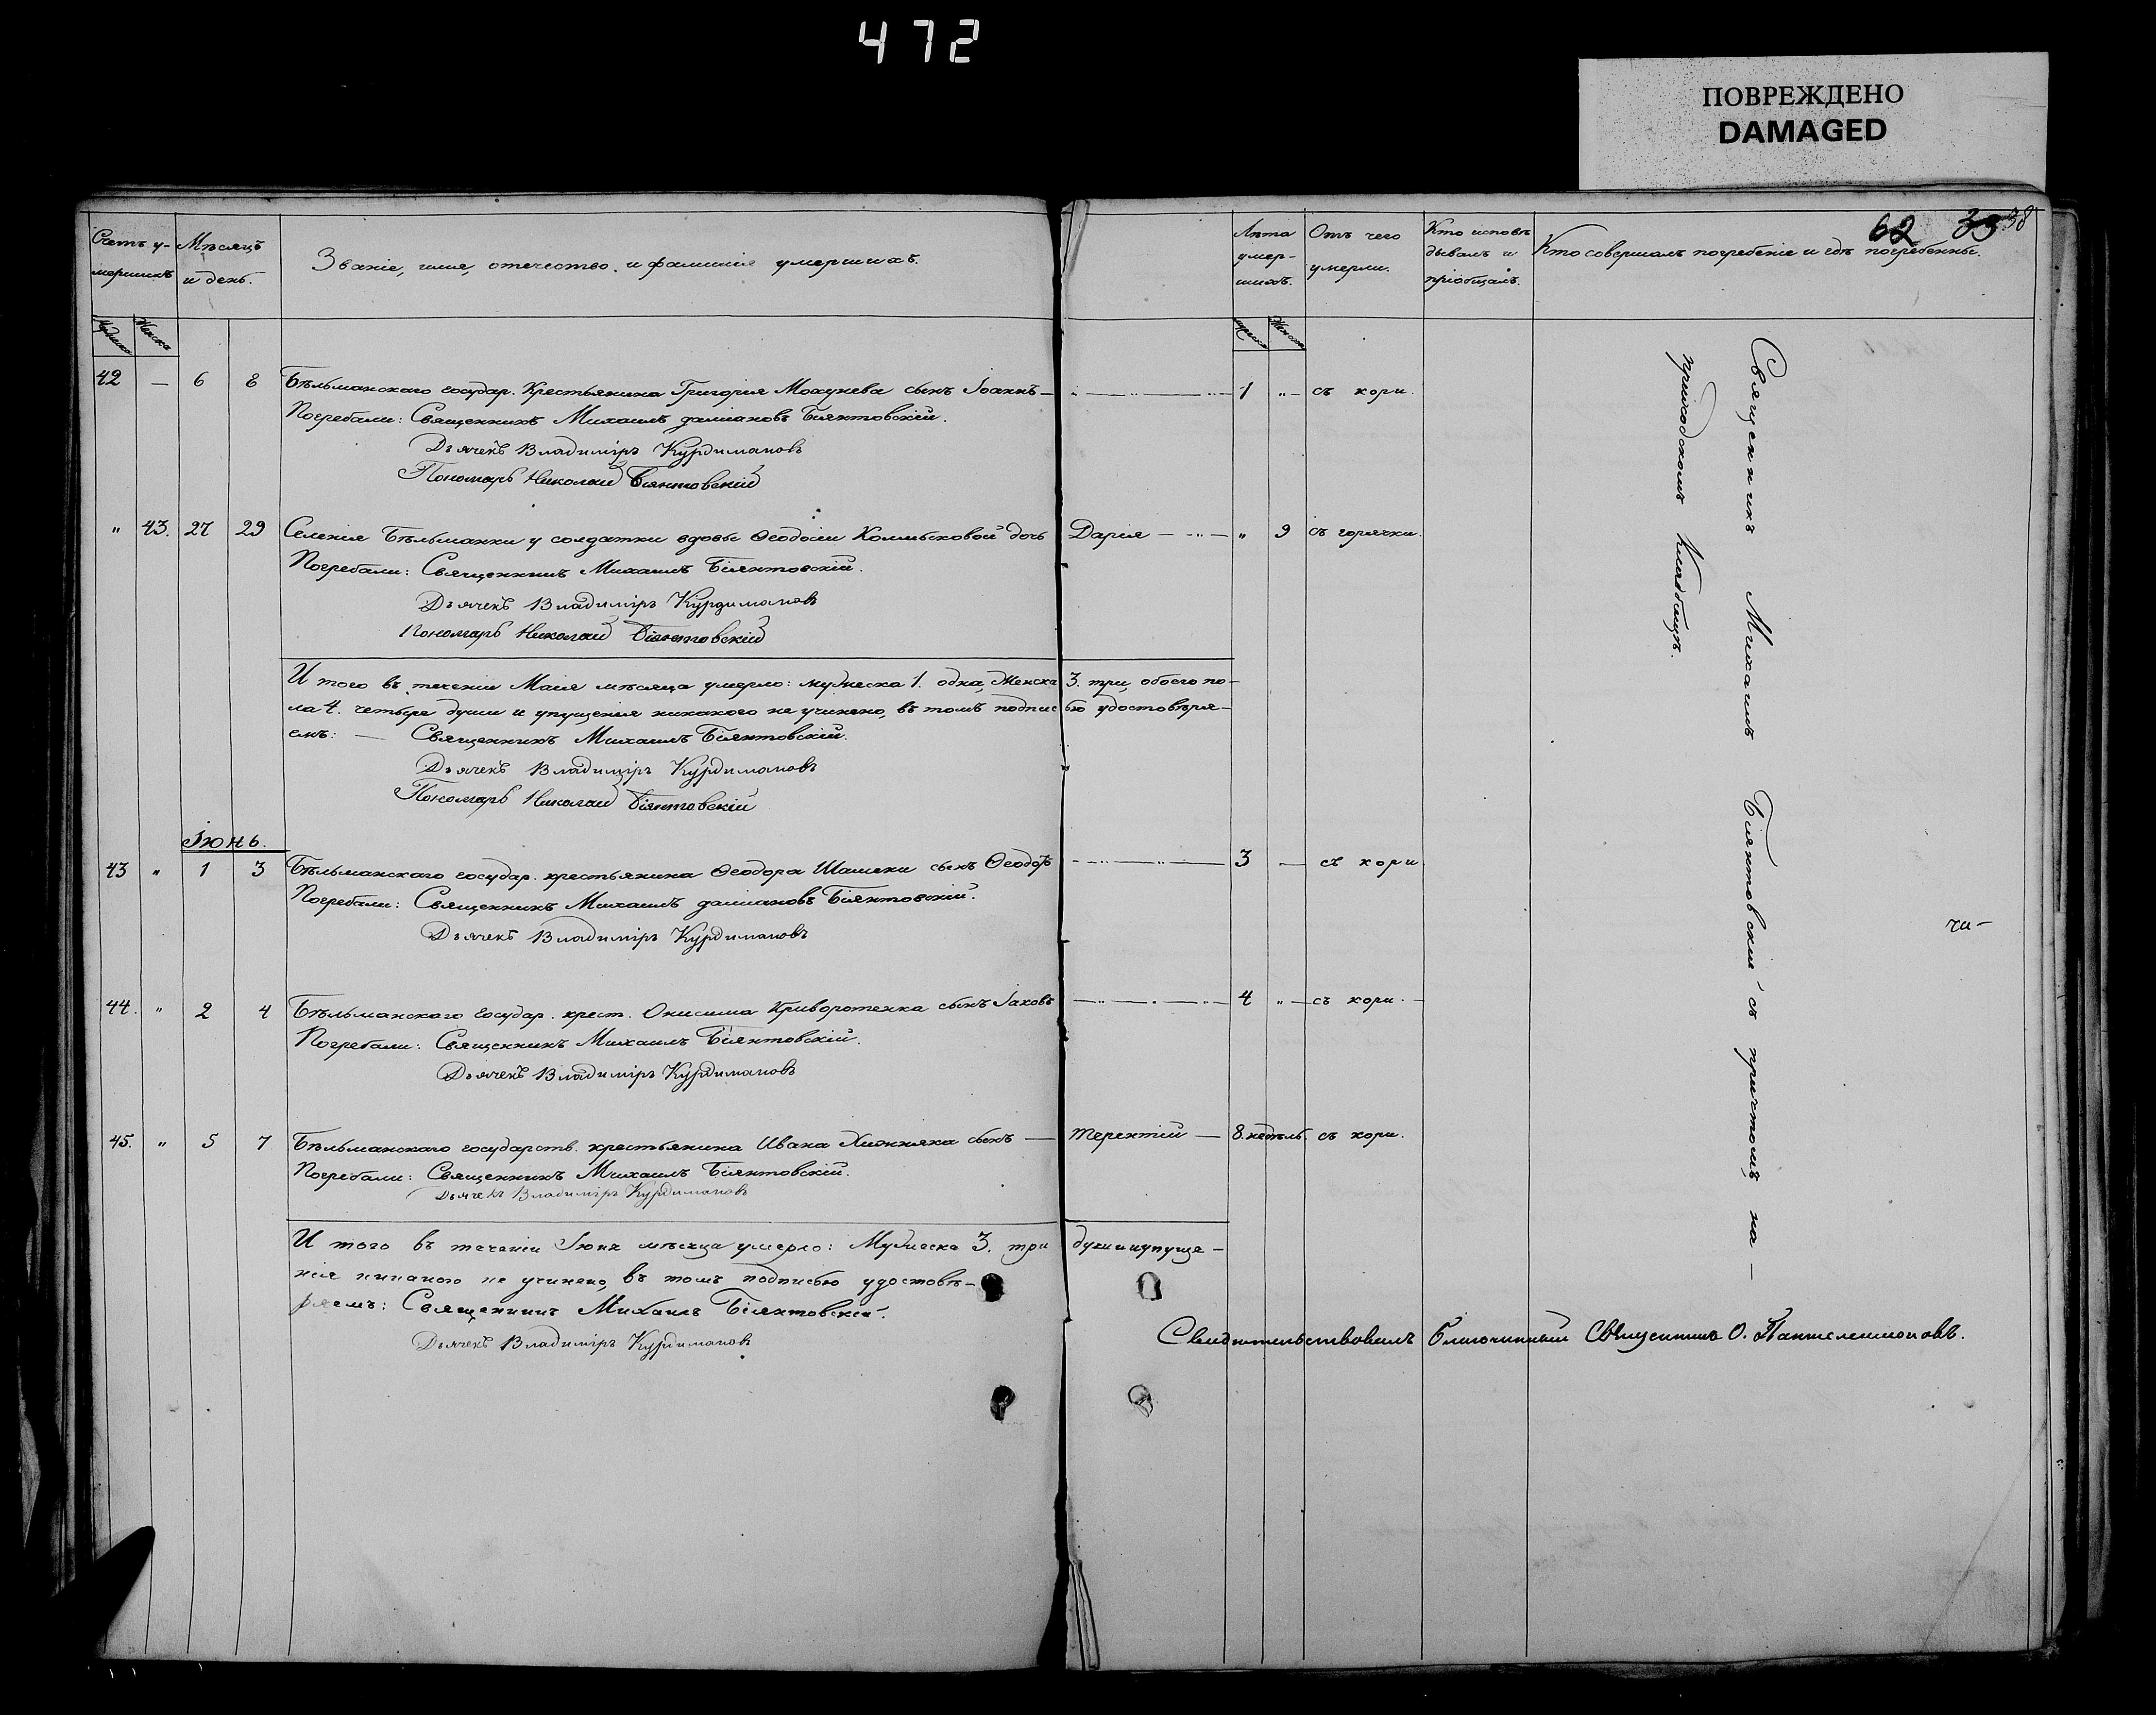 472
ПОВРЕЖДЕНО
DAMAGED
62 38
Счетъ у- Мѣсяцъ Званіе, имя, отечество, и фамилія умершихъ. Лѣта Отъ чего Кто исповѣ
мершихъ и день. умер- умерли. дывалъ и Кто совершалъ погребеніе и гдѣ погребенны.
шихъ. пріобщалъ.
Мужеска Женска
42 — 6 8 Бѣльманскаго государ. Крестьянина Григорія Мохунева сынъ Іоаннъ — 1 „ — съ кори.
Погребали: Священникъ Михаилъ даміановъ Біянтовскій.
Дьячекъ Владиміръ Курдимановъ
Пономарь Николай Біянтовскій
„ 43. 27 29 Селенія Бѣльманки у солдатки вдовы Ѳеодосіи Колмыковой дочь Дарія — „ 9 съ горячки.
Погребали: Священникъ Михаилъ Біянтовскій.
Дьячекъ Владиміръ Курдимановъ
Пономарь Николай Біянтовскій
И того въ теченіи Маія мѣсяца умерло: мужеска 1. одна, Женска 3. три, обоего по-
ла 4. четыре души и упущенія никакого не учинено, въ томъ подписью удостовѣря-
емъ: — Священникъ Михаилъ Біянтовскій.
Дьячекъ Владиміръ Курдимановъ
Пономарь Николай Біянтовскій
Іюнь.
43 „ 1 3 Бѣльманскаго государ. крестьянина Ѳеодора Шамски сынъ Ѳеодоръ — 3 — съ кори
Погребали: Священникъ Михаилъ даміановъ Біянтовскій.
Дьячекъ Владиміръ Курдимановъ
44. „ 2 4 Бѣльманскаго государ. крест. Онисима Криворотенка сынъ Іаковъ — 4 „ — съ кори. —
Погребали: Священникъ Михаилъ Біянтовскій.
Дьячекъ Владиміръ Курдимановъ
45. „ 5 7 Бѣльманскаго государств. крестьянина Ивана Хижняка сынъ — Терентій — 8. недѣль. съ кори.
Погребали: Священникъ Михаилъ Біянтовскій.
Дьячекъ Владиміръ Курдимановъ
И того въ теченіи Іюня мѣсяца умерло: Мужеска 3. три души и упуще-
нія никакого не учинено, въ томъ подписью удостовѣ-
ряемъ: Священникъ Михаилъ Біянтовскій.
Дьячекъ Владиміръ Курдимановъ
Священникъ Михаилъ Біянтовскій съ причтомъ, на —
приходскомъ Кладбищѣ.
Свидѣтельствовалъ Благочинный Священникъ О. Пантелеимоновъ.